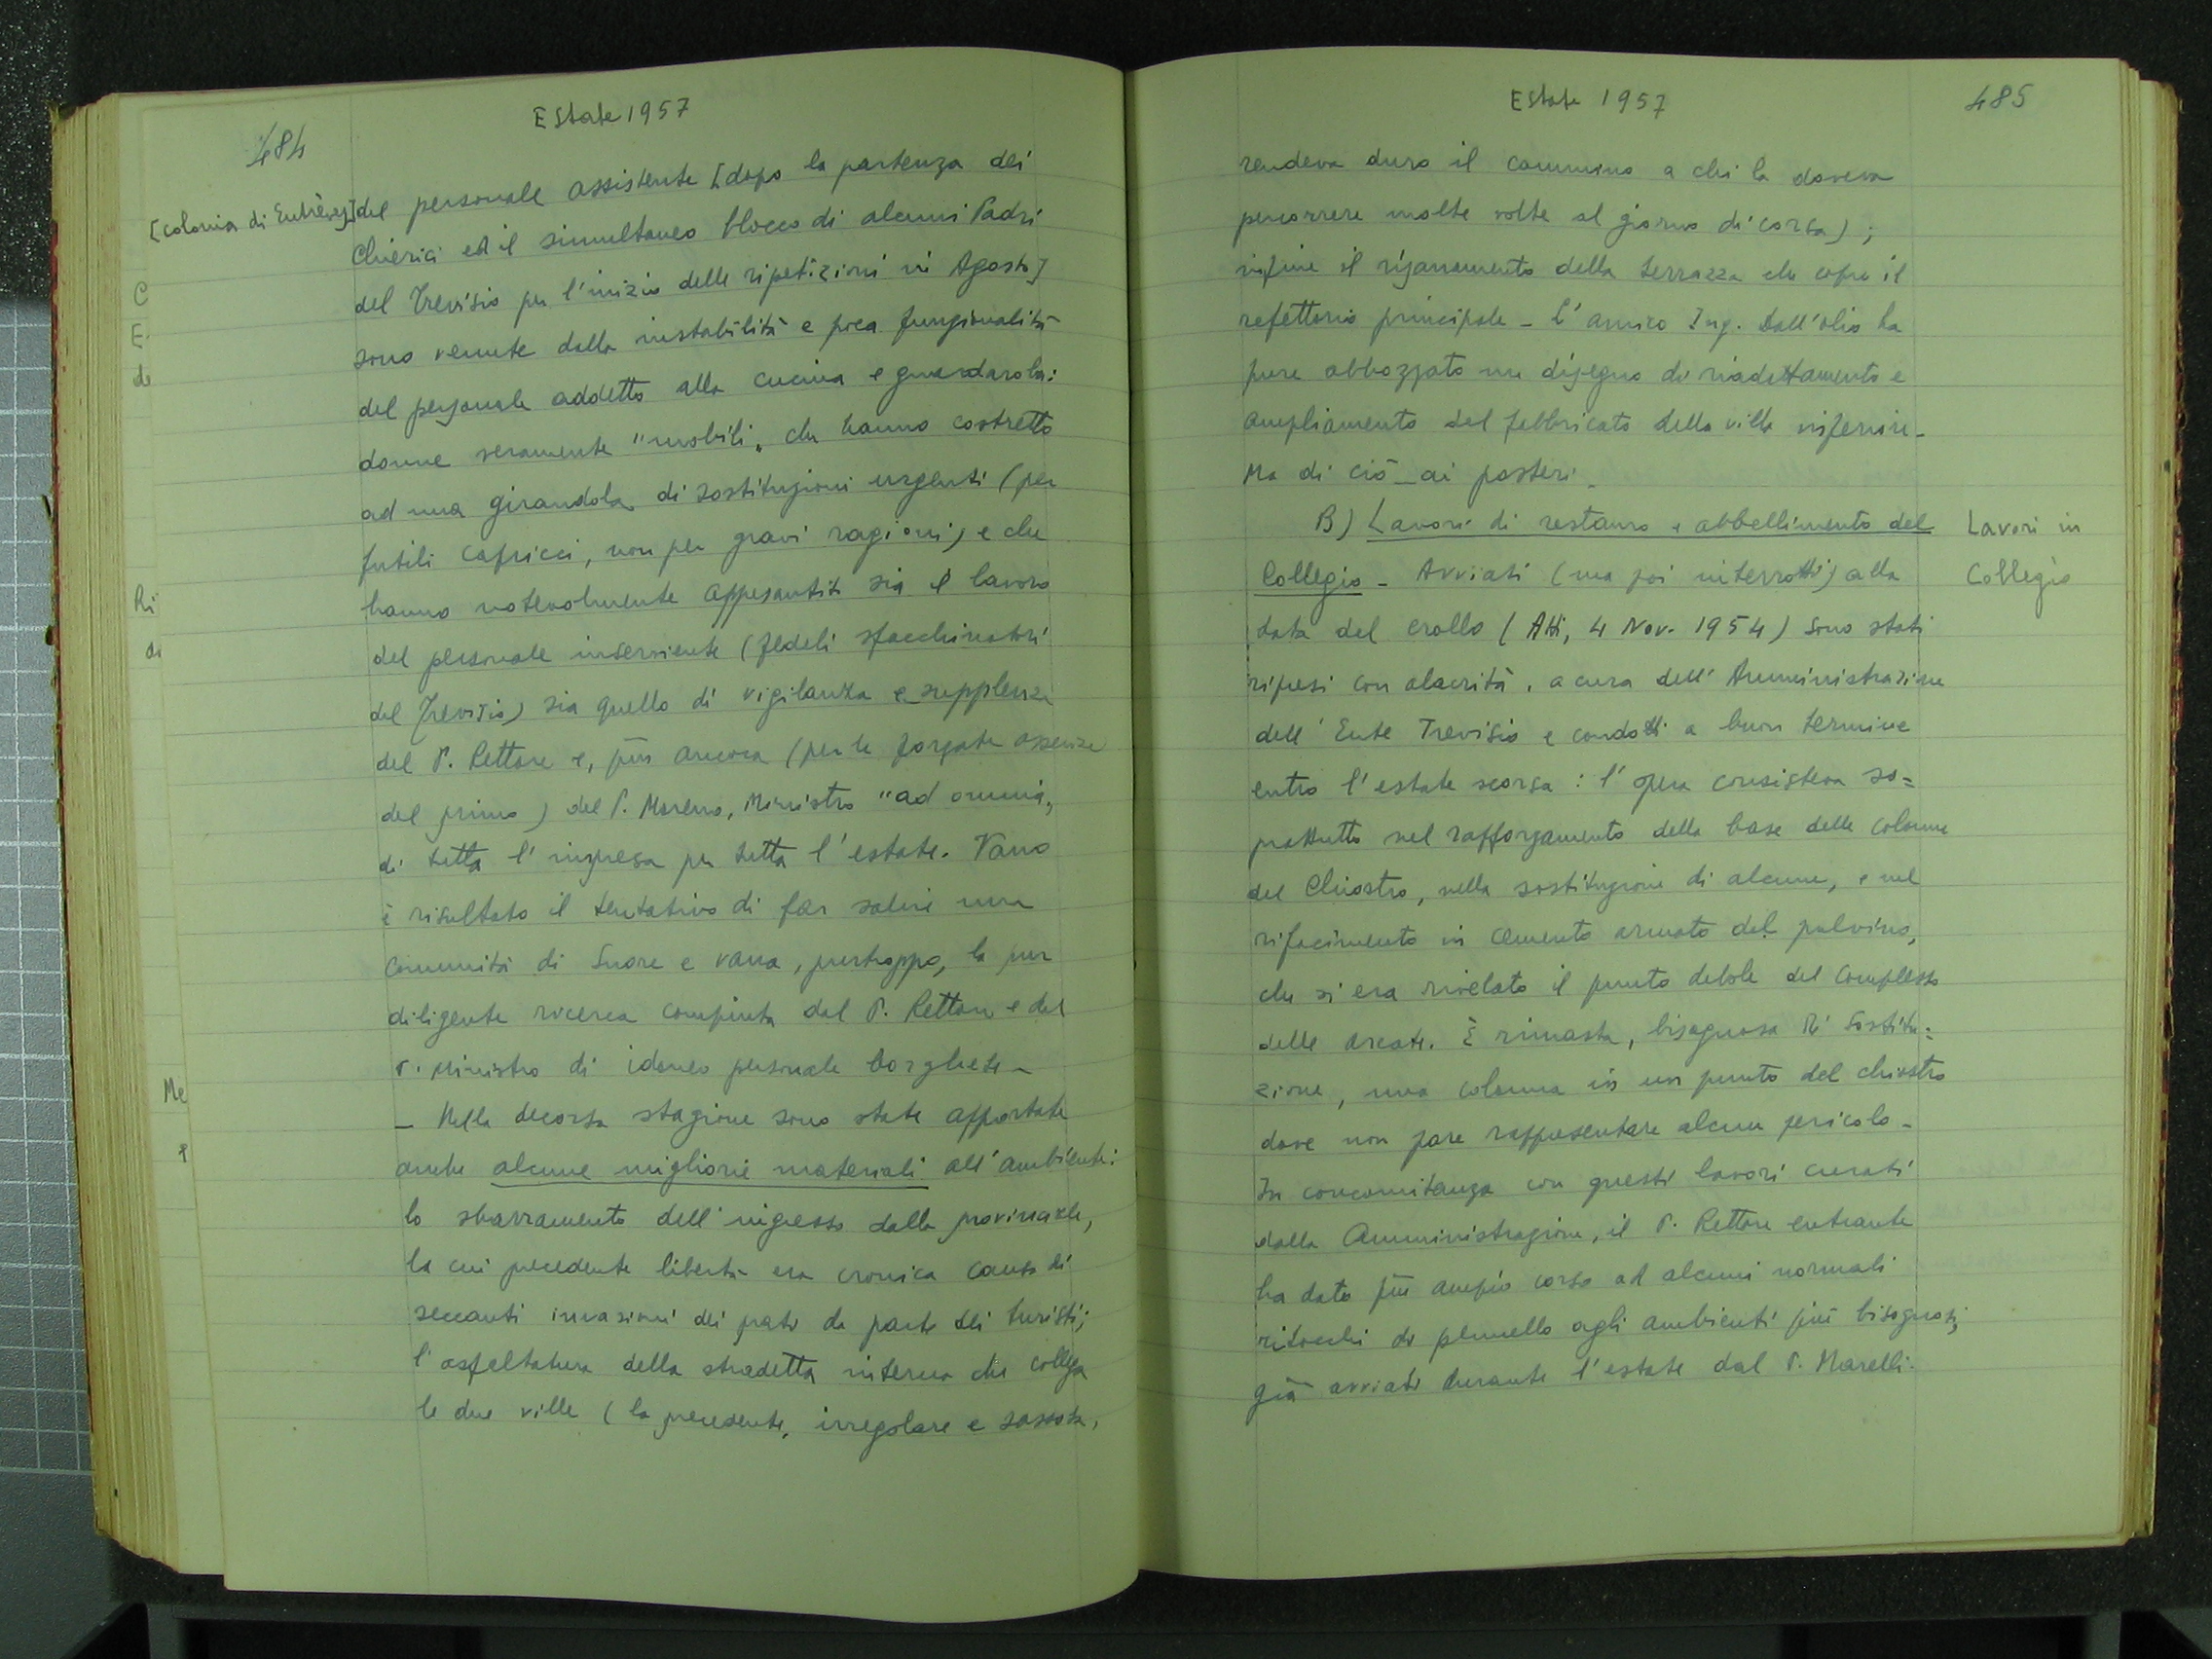 484
Estate 1957
[Colonia di Entrèves]
del personale assistente [dopo la partenza dei
Chierici ed il simultaneo blocco di alcuni Padri
del Trevisio per l'inizio delle ripetizioni in Agosto]
sono venute dalla instabilità e poca funzionalità
del personale addetto alla cucina e guardaroba:
donne veramente "mobili" che hanno costretto
ad una girandola di sostituzioni urgenti (per
futili capricci, non per gravi ragioni) e che
hanno notevolmente appesantito sia il lavoro
del personale inserviente (fedeli sfacchinatori
del Trevisio) sia quello di vigilanza e supplenza
del P. Rettore e, più ancora (per le forzate assenze
del primo) del P. Moreno, Ministro "ad omnia"
di tutta l'impresa per tutta l'estate. Vano
è risultato il tentativo di far salire una
Comunità di Suore e vana, purtroppo, la pur
diligente ricerca compiuta dal P. Rettore e dal
P. Ministro di idoneo personale borghese -
- Nella decorsa stagione sono state apportate
anche alcune migliorie materiali all'ambiente:
lo sbarramento dell'ingresso dalla provinciale,
la cui precedente libertà era cronica causa di
seccanti invasioni dei prati da parte dei turisti;
l'asfaltatura della stradetta interna che collega
le due ville (la precedente, irregolare e sassosa,
C
E.
de
Ri
di
Me
Estate 1957
485
rendeva duro il cammino a chi la doveva
percorrere molte volte al giorno di corsa);
infine il risanamento della terrazza che copre il
refettorio principale - L'amico Ing. Dall'Olio ha
pure abbozzato un disegno di riadattamento e
ampliamento del fabbricato della villa inferiore -
Ma di ciò - ai posteri -
B) Lavori di restauro e abbellimento del
Lavori in
Collegio
Collegio - Avviati (ma poi interrotti) alla
data del crollo (Atti, 4 Nov. 1954) sono stati
ripresi con alacrità, a cura dell'Amministrazione
dell'Ente Trevisio e condotti a buon termine
entro l'estate scorsa: l'opera consisteva so=
prattutto nel rafforzamento della base delle colonne
del Chiostro, nella sostituzione di alcune, e nel
rifacimento in cemento armato del pulvino,
che si era rivelato il punto debole del complesso
delle arcate. È rimasta, bisognosa di sostitu=
zione, una colonna in un punto del chiostro
dove non pare rappresentare alcun pericolo -
In concomitanza con questi lavori curati
dalla Amministrazione, il P. Rettore entrante
ha dato più ampio corso ad alcuni normali
ritocchi di pennello agli ambienti più bisognosi,
già avviati durante l'estate dal P. Marelli.